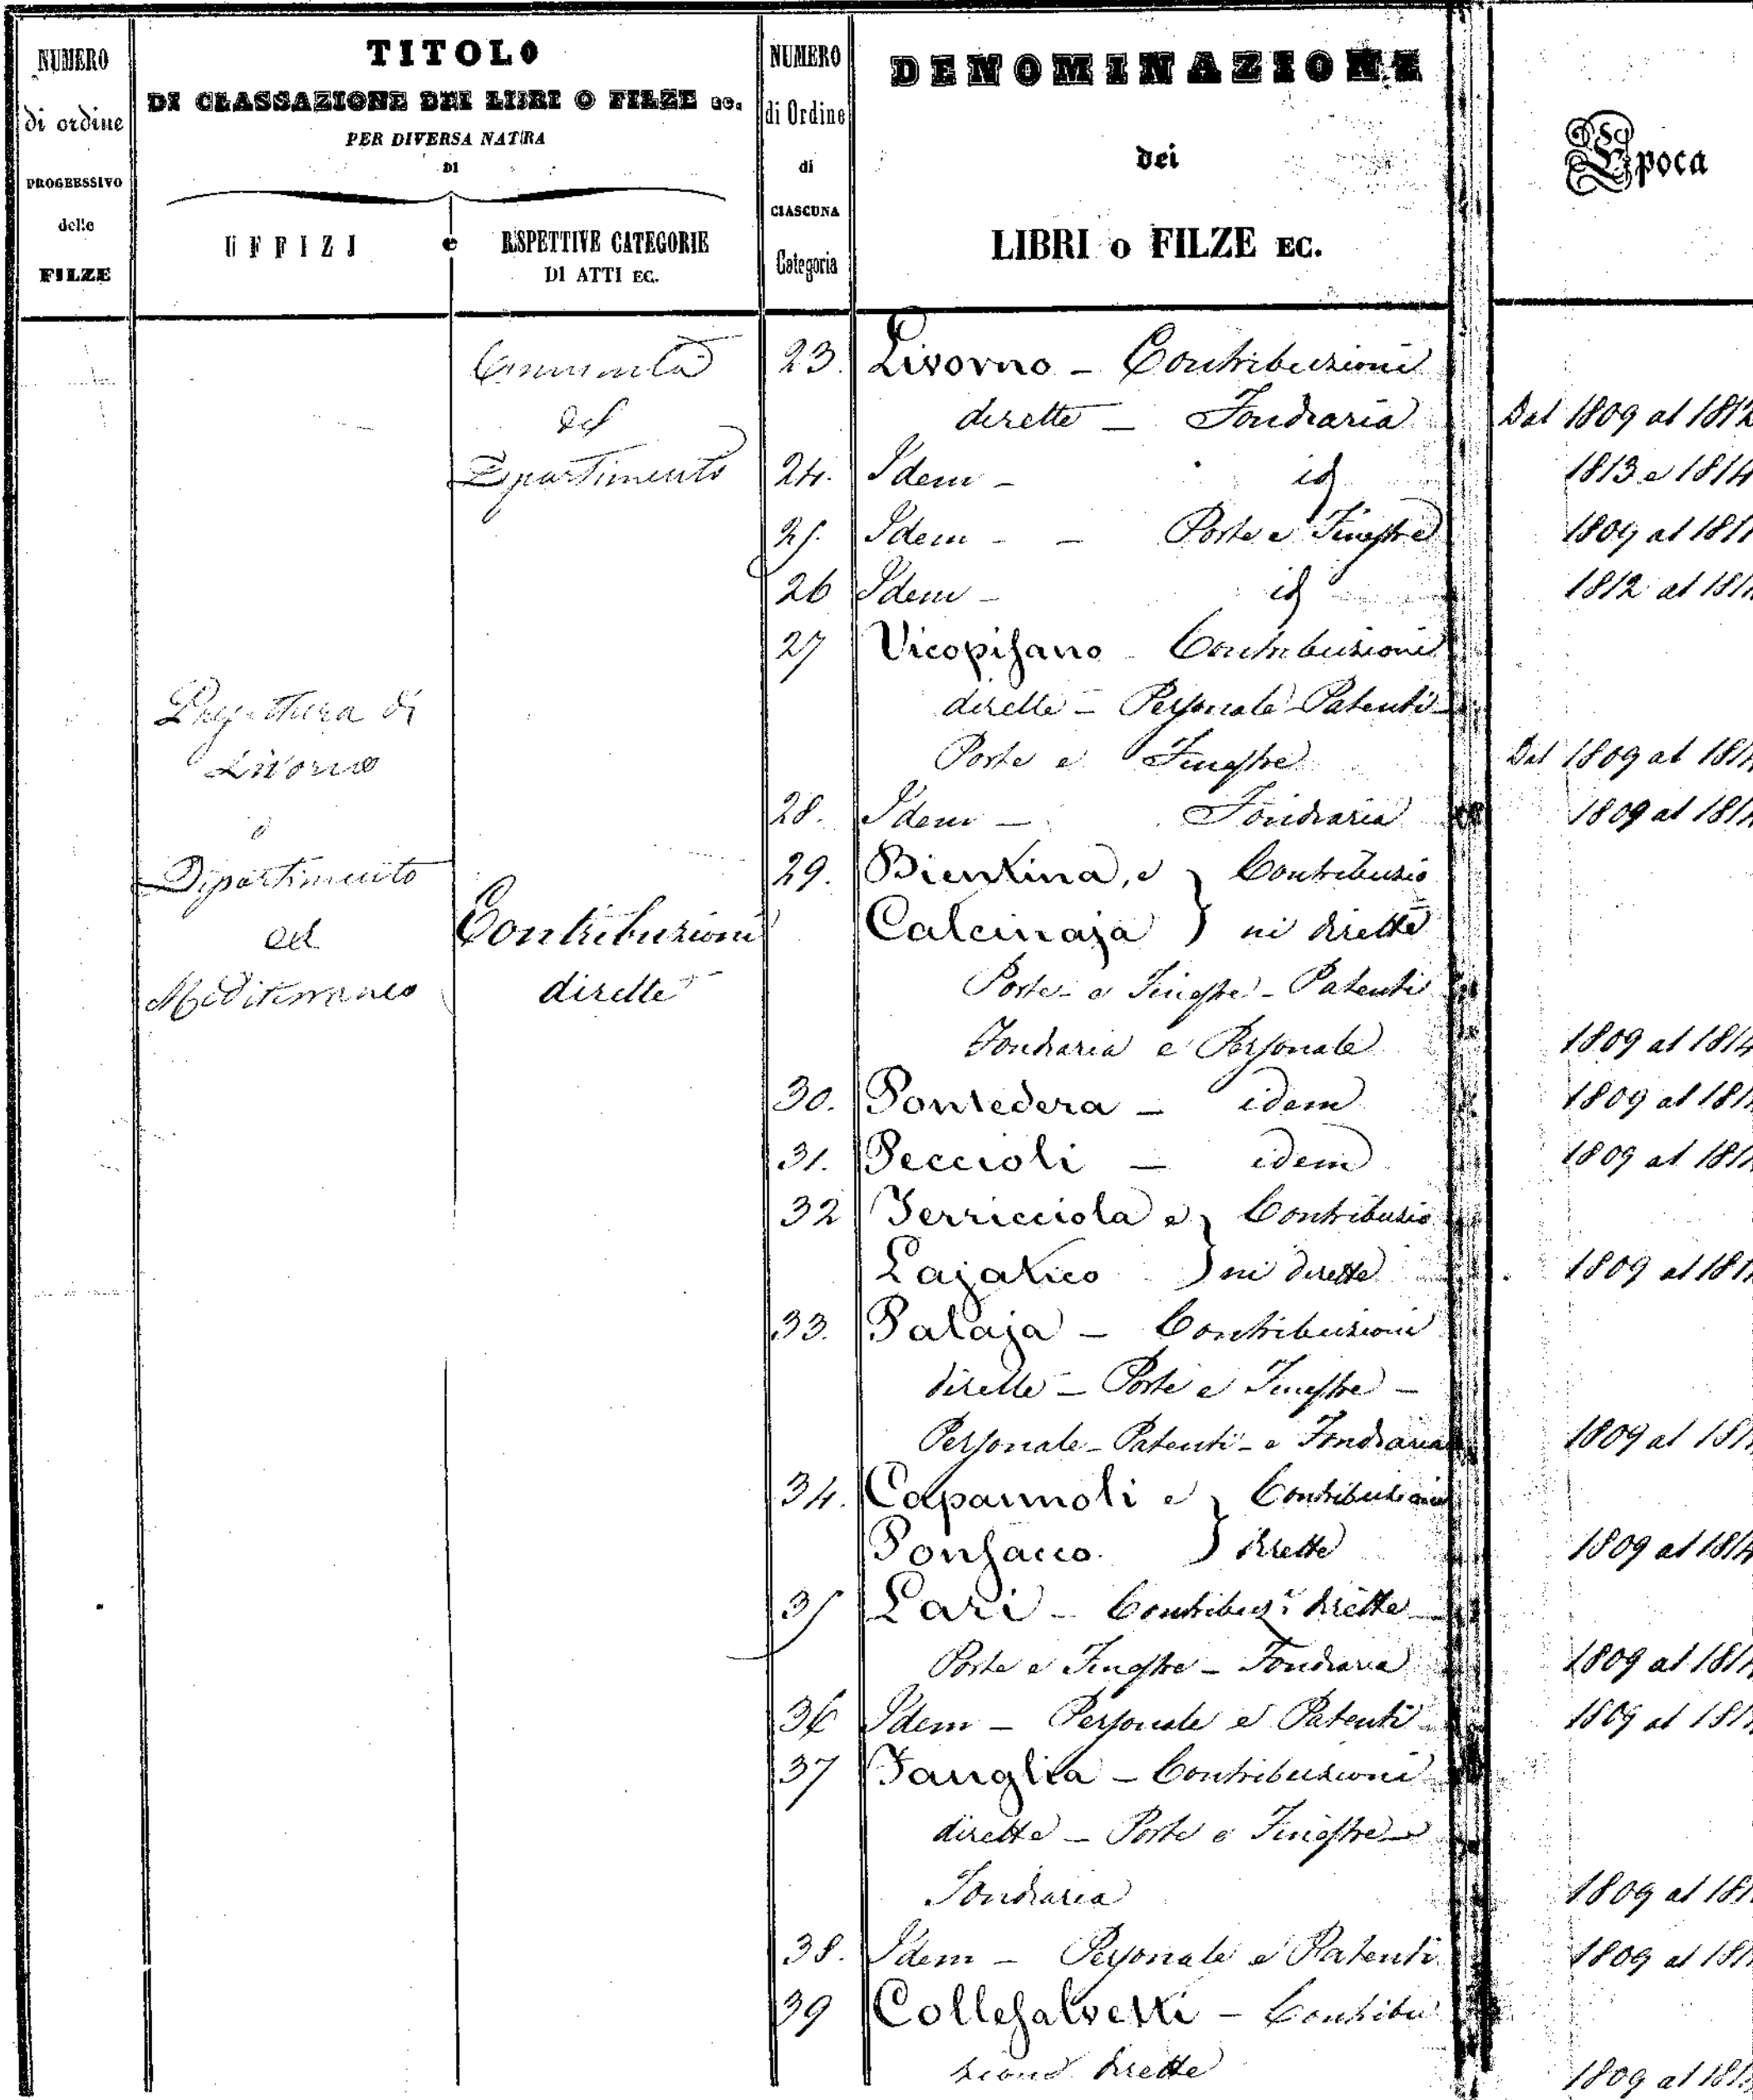 NUMERO
di ordine
PROGRESSIVO
delle
FILZE
TITOLO
DI CLASSAZIONE DEI LIBRI O FILZE ec.
PER DIVERSA NATURA
DI
UFFIZJ e RISPETTIVE CATEGORIE
DI ATTI EC.
NUMERO
di Ordine
di
CIASCUNA
Categoria
DENOMINAZIONE
dei
LIBRI o FILZE EC.
Epoca
Prefettura di
Livorno
o
Dipartimento
del
Mediterraneo
Comunità
del
Dipartimento
Contribuzioni
dirette
23. Livorno - Contribuzioni
dirette - Fondiaria Dal 1809 al 1812
24. Idem - id 1813 e 1814
25. Idem - - Porte e Finestre 1809 al 1811
26 Idem - id 1812 al
27 Vicopisano - Contribuzioni
dirette - Personale - Patenti -
Porte e Finestre Dal 1809 al
28. Idem - Fondiaria 1809 al
29. Bientina, e } Contribuzio
Calcinaja } ni dirette
Porte - e Finestre - Patenti
Fondiaria e Personale 1809 al 1814
30. Pontedera - idem 1809 al
31. Peccioli - idem 1809 al
32 Terricciola e } Contribuzio
Lajatico } ni dirette 1809 al
33. Palaja - Contribuzioni
dirette - Porte e Finestre -
Personale - Patenti - e Fondiaria 1809 al
34. Capannoli e } Contribuzioni
Ponsacco. } dirette 1809 al 1814
35 Lari - Contribuz.i dirette -
Porte e Finestre - Fondiaria 1809 al
36 Idem - Personale e Patenti 1809 al
37 Fauglia - Contribuzioni
dirette - Porte e Finestre -
Fondiaria 1809 al
38. Idem - Personale e Patenti 1809 al
39 Collesalvetti - Contribu
zioni dirette 1809 al